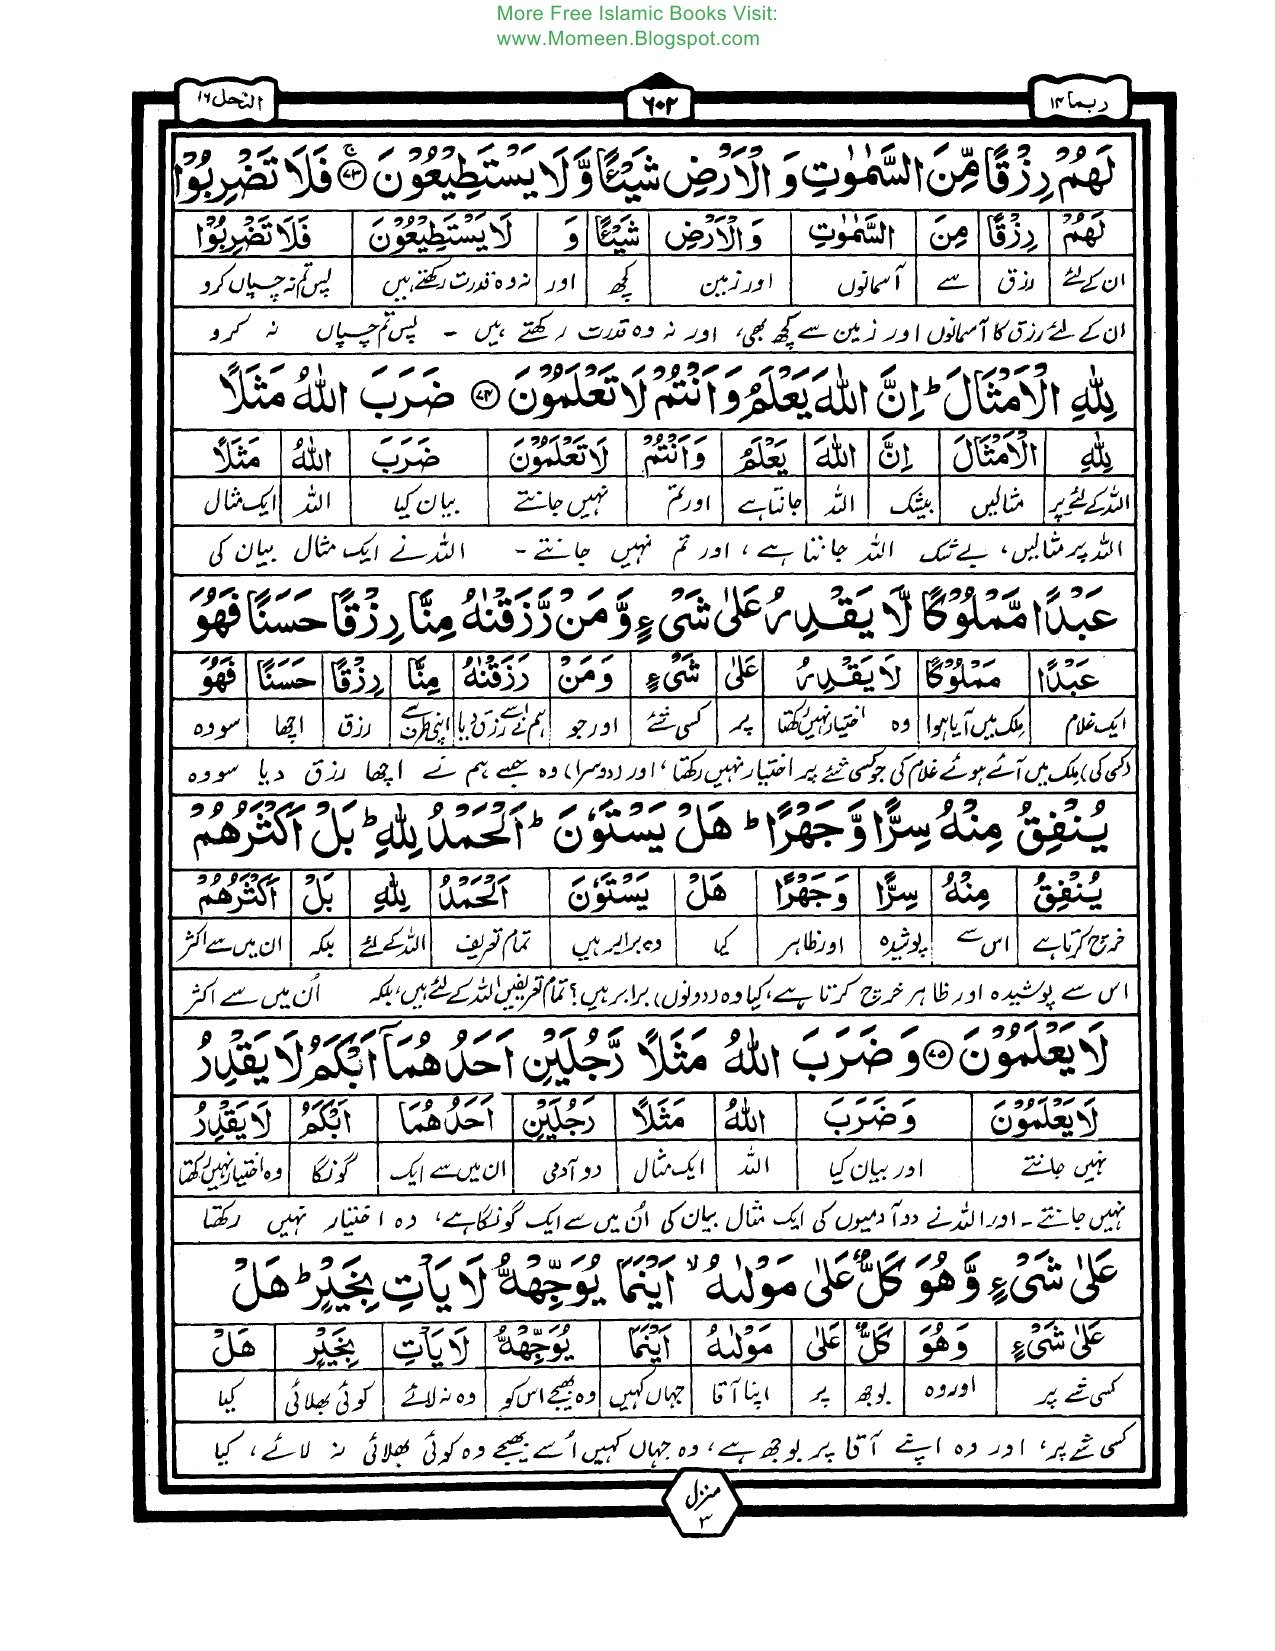 More Free Islamic Books Visit:
www.Momeen.Blogspot.com
ربما ۱۴ ۶۰۲ النحل ۱۶
لَهُمْ رِزْقًا مِّنَ السَّمٰوٰتِ وَ الْاَرْضِ شَيْـًٔا وَّ لَا يَسْتَطِيْعُوْنَ ۚ﴿۷۳﴾ فَلَا تَضْرِبُوْا
لَهُمْ رِزْقًا مِنَ السَّمٰوٰتِ وَالْاَرْضِ شَيْـًٔا وَ لَا يَسْتَطِيْعُوْنَ فَلَا تَضْرِبُوْا
ان کے لئے رزق سے آسمانوں اور زمین کچھ اور نہ وہ قدرت رکھتے ہیں پس تم نہ چسپاں کرو
ان کے لئے رزق کا آسمانوں اور زمین سے کچھ بھی، اور نہ وہ قدرت رکھتے ہیں ۔ پس تم چسپاں نہ کرو
لِلّٰهِ الْاَمْثَالَ ؕ اِنَّ اللّٰهَ يَعْلَمُ وَ اَنْتُمْ لَا تَعْلَمُوْنَ ﴿۷۴﴾ ضَرَبَ اللّٰهُ مَثَلًا
لِلّٰهِ الْاَمْثَالَ اِنَّ اللّٰهَ يَعْلَمُ وَاَنْتُمْ لَا تَعْلَمُوْنَ ضَرَبَ اللّٰهُ مَثَلًا
اللہ کے لئے پر مثالیں بیشک اللہ جانتا ہے اور تم نہیں جانتے بیان کیا اللہ ایک مثال
اللہ پر مثالیں، بے شک اللہ جانتا ہے، اور تم نہیں جانتے ۔ اللہ نے ایک مثال بیان کی
عَبْدًا مَّمْلُوْكًا لَّا يَقْدِرُ عَلٰى شَىْءٍ وَّ مَنْ رَّزَقْنٰهُ مِنَّا رِزْقًا حَسَنًا فَهُوَ
عَبْدًا مَمْلُوْكًا لَا يَقْدِرُ عَلٰى شَىْءٍ وَمَنْ رَزَقْنٰهُ مِنَّا رِزْقًا حَسَنًا فَهُوَ
ایک غلام ملک میں آیا ہوا وہ اختیار نہیں رکھتا پر کسی شئے اور جو ہم نے اسے رزق دیا اپنی طرف سے رزق اچھا سو وہ
(کسی کی) ملک میں آئے ہوئے غلام کی جو کسی شئے پر اختیار نہیں رکھتا، اور (دوسرا) وہ جسے ہم نے اچھا رزق دیا سو وہ
يُنْفِقُ مِنْهُ سِرًّا وَّ جَهْرًا ؕ هَلْ يَسْتَوٗنَ ؕ اَلْحَمْدُ لِلّٰهِ ؕ بَلْ اَكْثَرُهُمْ
يُنْفِقُ مِنْهُ سِرًّا وَجَهْرًا هَلْ يَسْتَوٗنَ اَلْحَمْدُ لِلّٰهِ بَلْ اَكْثَرُهُمْ
خرچ کرتا ہے اس سے پوشیدہ اور ظاہر کیا وہ برابر ہیں تمام تعریف اللہ کے لئے بلکہ ان میں سے اکثر
اس سے پوشیدہ اور ظاہر خرچ کرتا ہے، کیا وہ (دونوں) برابر ہیں؟ تمام تعریفیں اللہ کے لئے ہیں، بلکہ اُن میں سے اکثر
لَا يَعْلَمُوْنَ ﴿۷۵﴾ وَ ضَرَبَ اللّٰهُ مَثَلًا رَّجُلَيْنِ اَحَدُهُمَاۤ اَبْكَمُ لَا يَقْدِرُ
لَا يَعْلَمُوْنَ وَضَرَبَ اللّٰهُ مَثَلًا رَجُلَيْنِ اَحَدُهُمَا اَبْكَمُ لَا يَقْدِرُ
نہیں جانتے اور بیان کیا اللہ ایک مثال دو آدمی ان میں سے ایک گونگا وہ اختیار نہیں رکھتا
نہیں جانتے ۔ اور اللہ نے دو آدمیوں کی ایک مثال بیان کی اُن میں سے ایک گونگا ہے، وہ اختیار نہیں رکھتا
عَلٰى شَىْءٍ وَّ هُوَ كَلٌّ عَلٰى مَوْلٰىهُ ۙ اَيْنَمَا يُوَجِّهْهُّ لَا يَاْتِ بِخَيْرٍ ؕ هَلْ
عَلٰى شَىْءٍ وَهُوَ كَلٌّ عَلٰى مَوْلٰىهُ اَيْنَمَا يُوَجِّهْهُّ لَا يَاْتِ بِخَيْرٍ هَلْ
کسی شے پر اور وہ بوجھ پر اپنا آقا جہاں کہیں وہ بھیجے اس کو وہ نہ لائے کوئی بھلائی کیا
کسی شے پر، اور وہ اپنے آقا پر بوجھ ہے، وہ جہاں کہیں اُسے بھیجے وہ کوئی بھلائی نہ لائے، کیا
منزل
۳